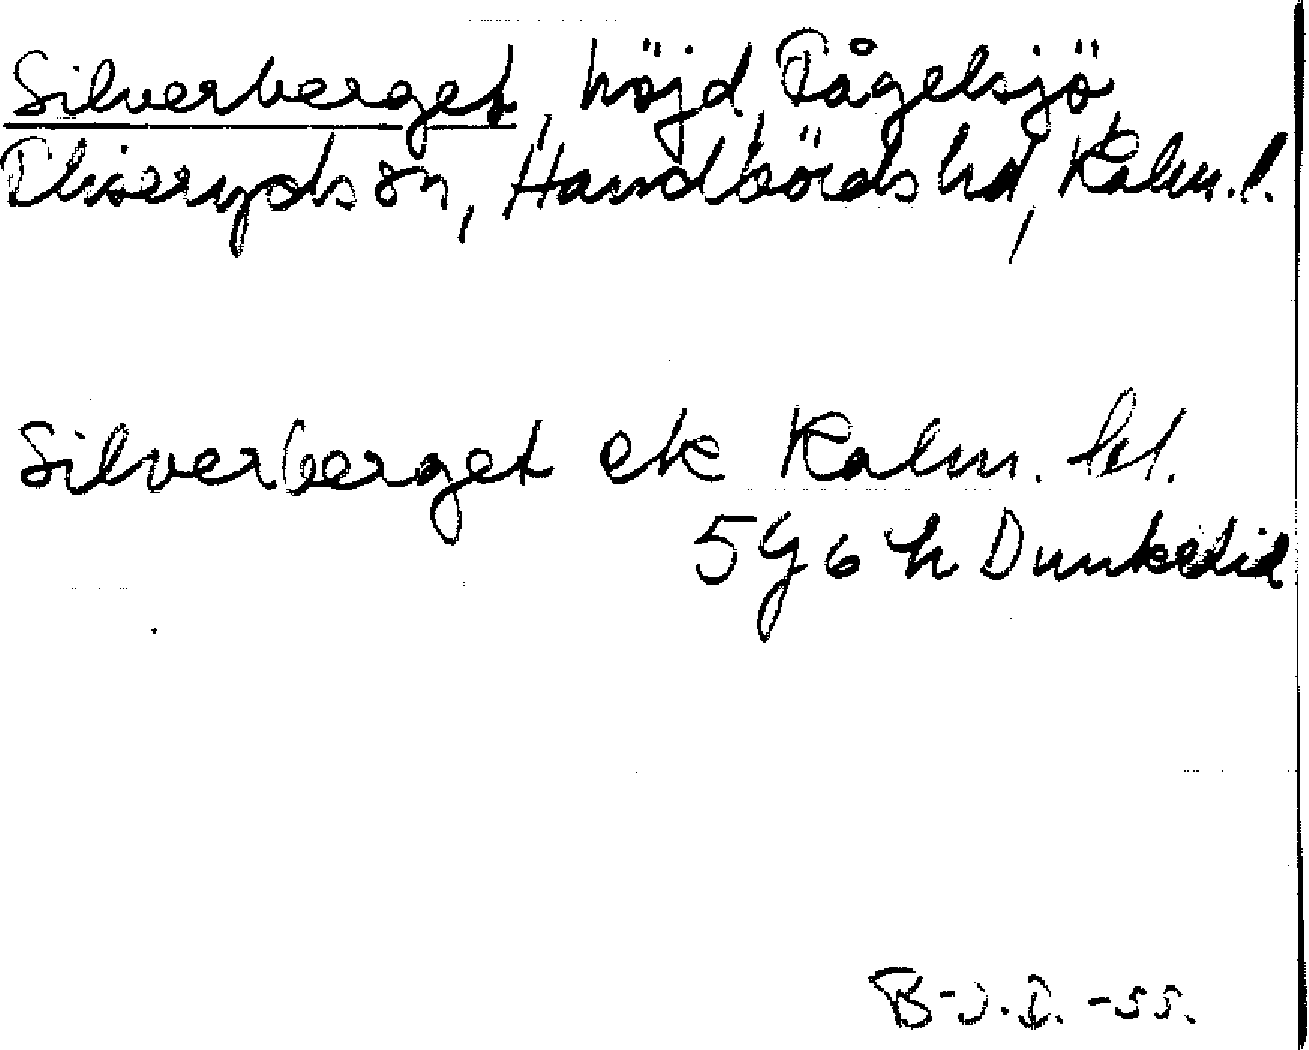 Silverberget, höjd, Pågelsjö,
Fliseryds sn, Handbörds hd, Kalm. l.
Silverberget ek Kalm. bl.
5 G 6 h Dunketid
B-J.I. -55.